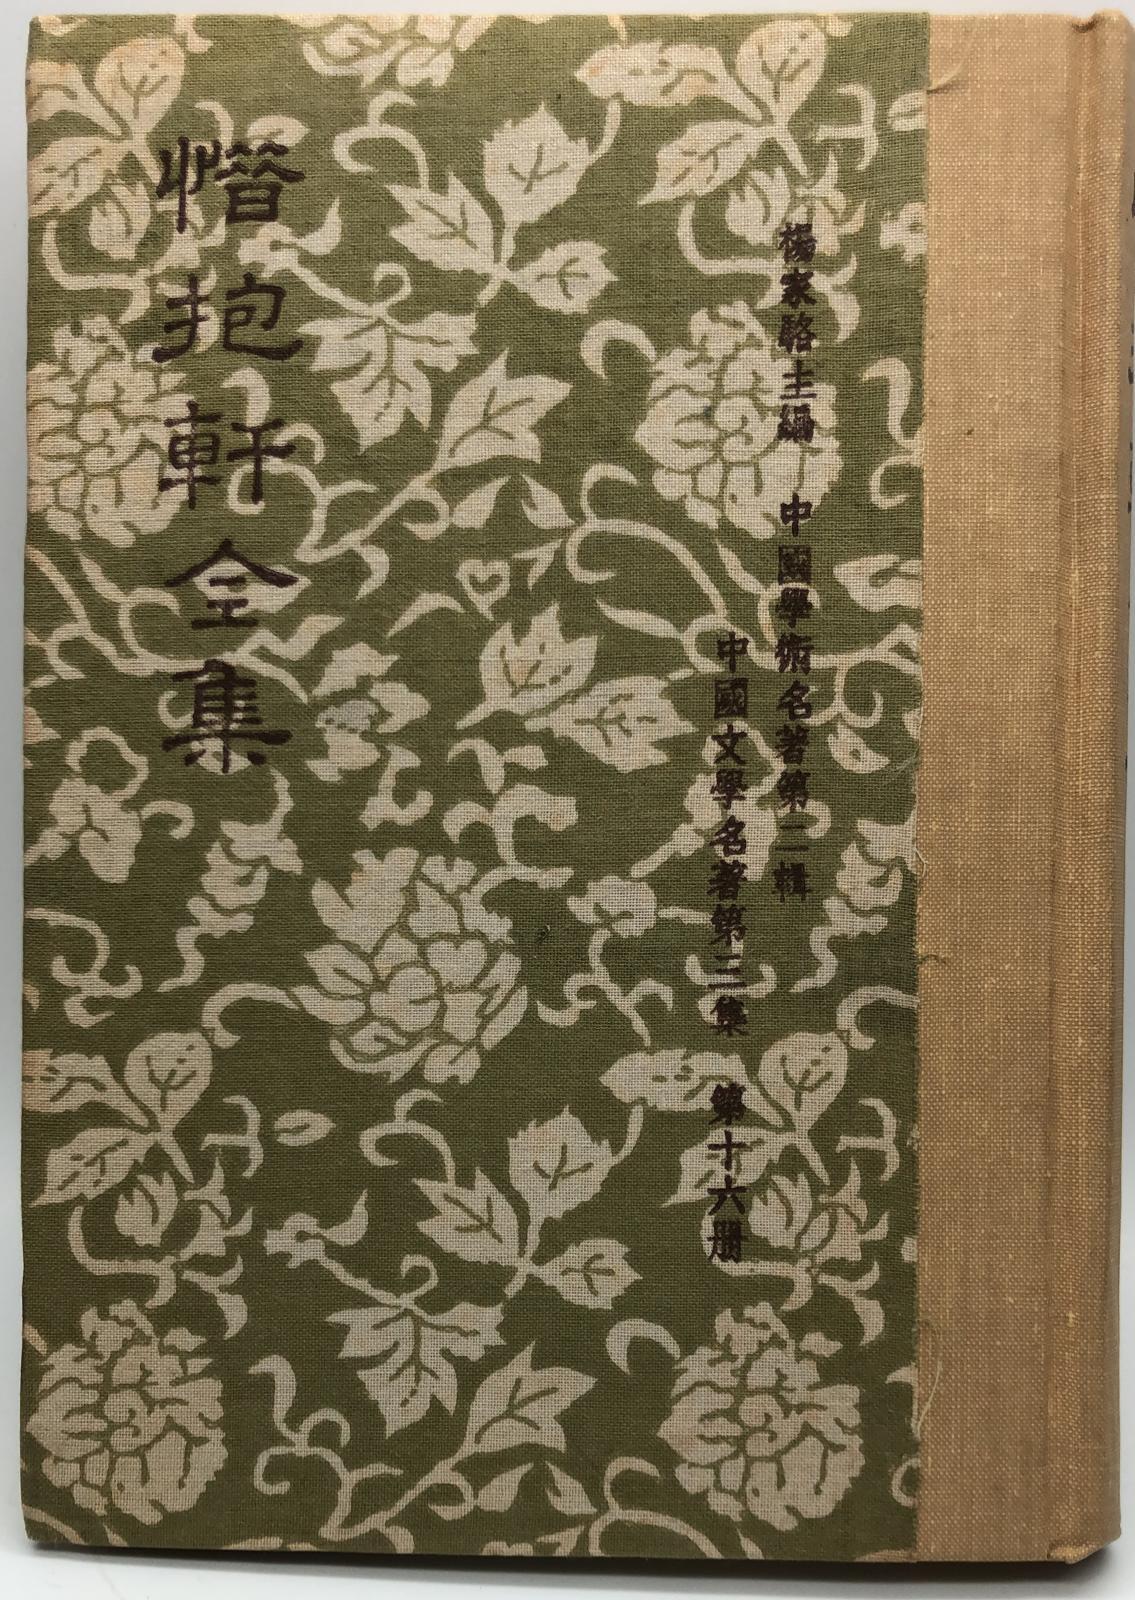 楊家駱主編　中國學術名著第二輯
中國文學名著第三集　第十六册
惜抱軒全集